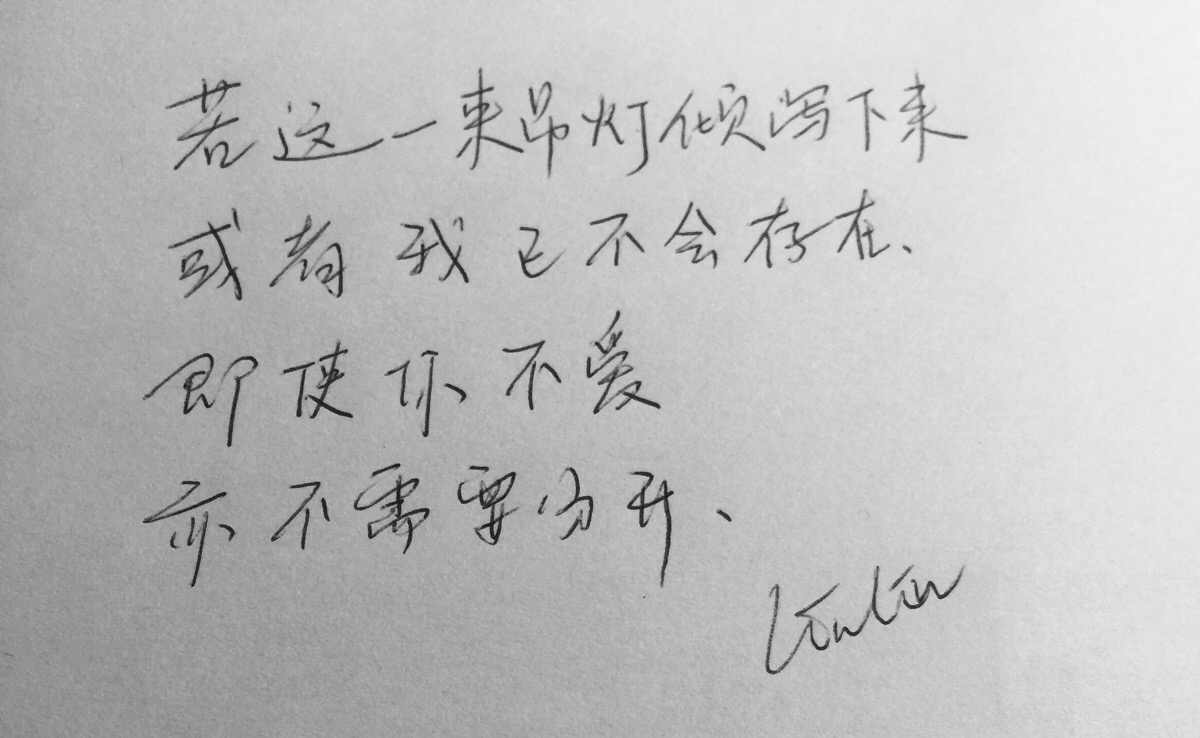 若这一束吊灯倾泻下来
或者我已不会存在、
即使你不爱
亦不需要分开、